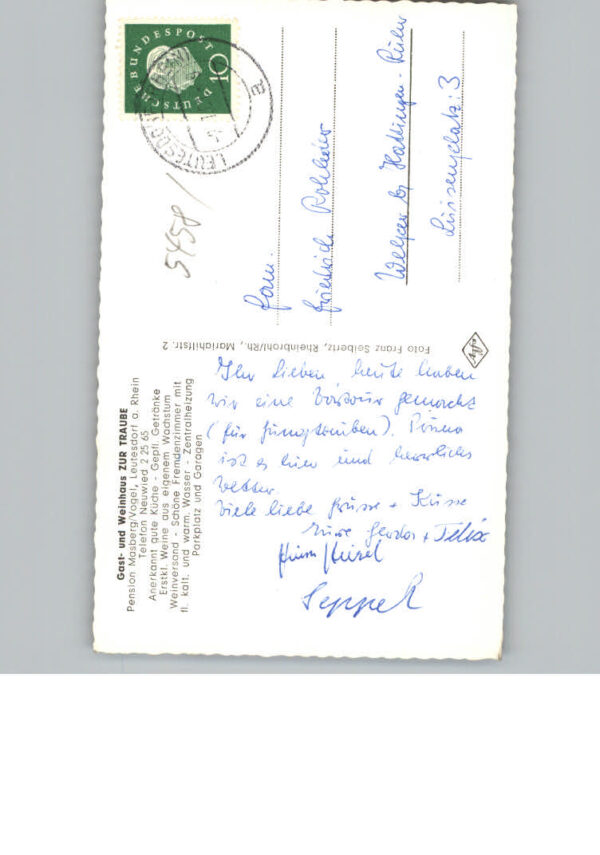 Gast- und Weinhaus ZUR TRAUBE
Pension Masberg/Vogel, Leutesdorf a. Rhein
Telefon Neuwied 2 25 65
Anerkannt gute Küche - Gepfl. Getränke
Erstkl. Weine aus eigenem Wachstum
Weinversand - Schöne Fremdenzimmer mit
fl. kalt. und warm. Wasser - Zentralheizung
Parkplatz und Garagen
Ihr Lieben, heute haben
wir eine Bootstour gemacht
(für Jungtauben). Prima
ist es hier und herrliches
Wetter
Viele liebe Grüsse + Küsse
Eure Gerda + Felix
Seppel
Foto Franz Seibertz, Rheinbrohl/Rh., Mariahilfstr. 2
Agfa
5458/
DEUTSCHE BUNDESPOST
10
LEUTESDORF
a
Fam.
Friedrich Rohleder
Welper bei Hattingen-Ruhr
Luisenplatz: 3